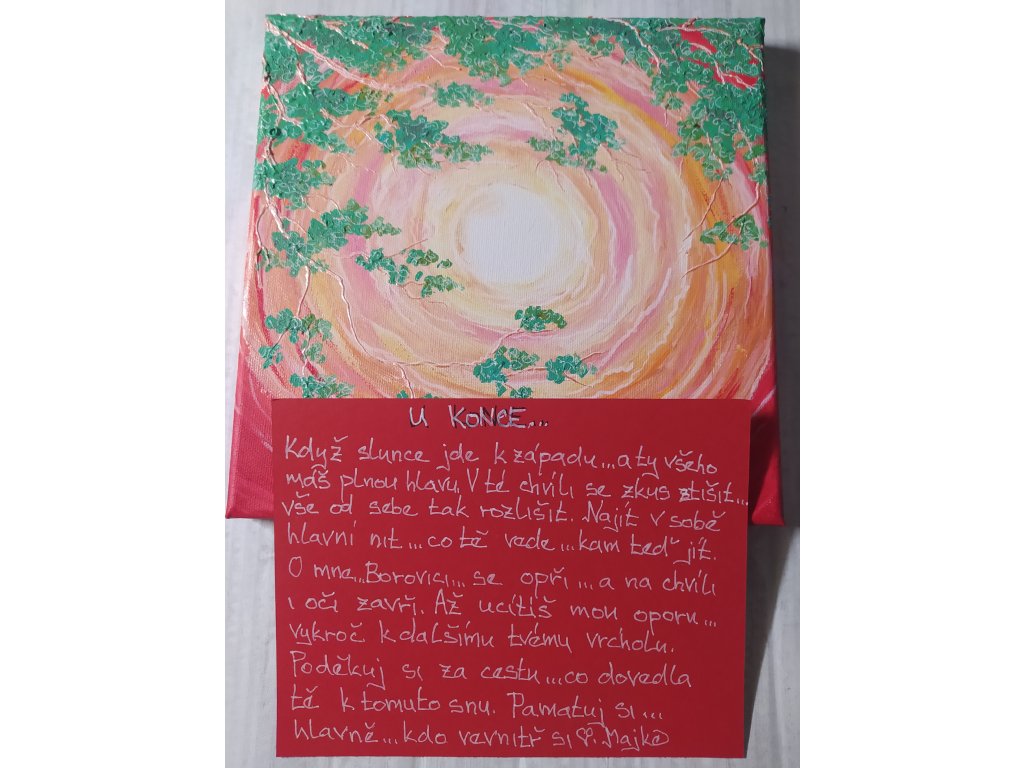 U KONCE...
Když slunce jde k západu...a ty všeho
máš plnou hlavu. V té chvíli se zkus ztišit...
vše od sebe tak rozlišit. Najít v sobě
hlavní nit...co tě vede...kam teď jít.
O mne..Borovici... se opři...a na chvíli
i oči zavři. Až ucítíš mou oporu...
vykroč k dalšímu tvému vrcholu.
Poděkuj si za cestu...co dovedla
tě k tomuto snu. Pamatuj si...
hlavně...kdo vevnitř si♡. Majka